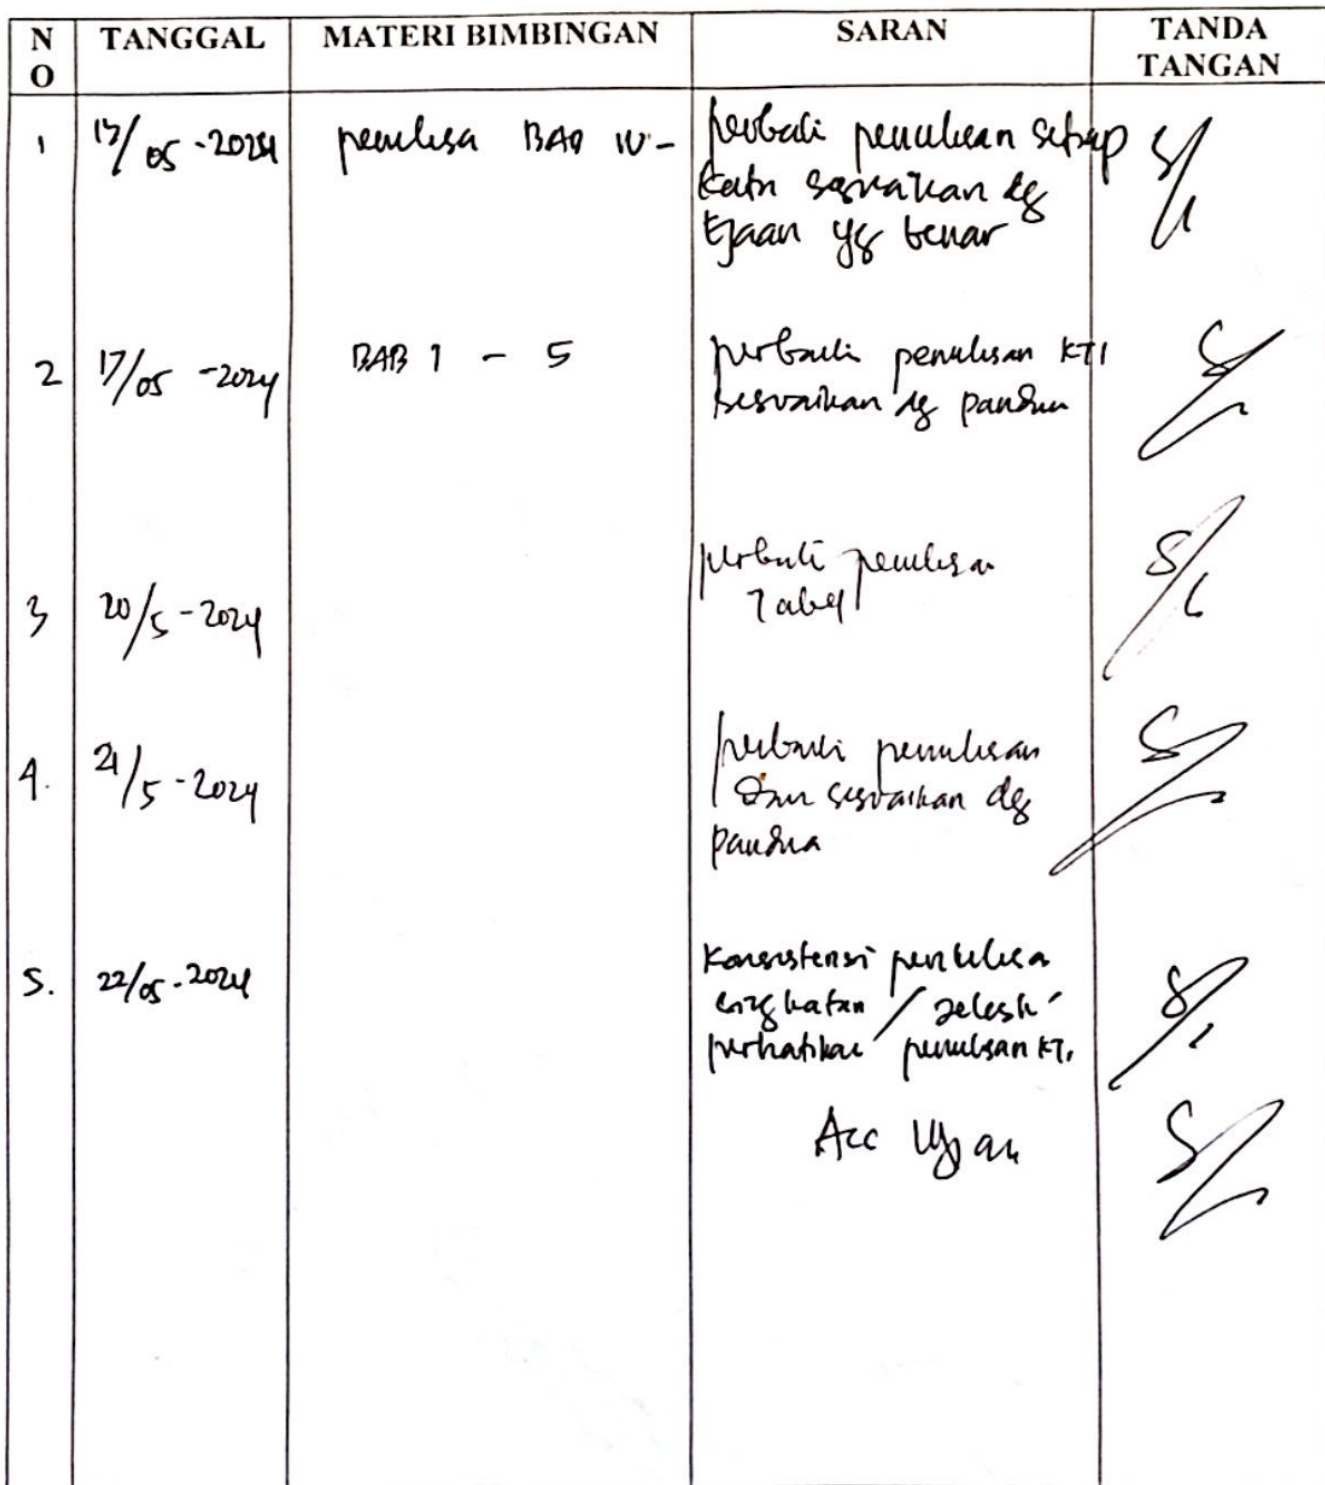 N
O
TANGGAL
MATERI BIMBINGAN
SARAN
TANDA
TANGAN
1
/05-2024
penulisa BAB IV-
perbaiki penulisan setiap
kata sesuaikan dg
Ejaan yg benar
2
17/05-2024
BAB 1 - 5
perbaiki penulisan KTI
sesuaikan dg panduan
3
20/5-2024
perbaiki penulisan
Tabel
4.
21/5-2024
perbaiki penulisan
dan sesuaikan dg
panduan
5.
22/05-2024
Konsistensi penulisa
perhatikan penulisan KTI
Acc Ujian